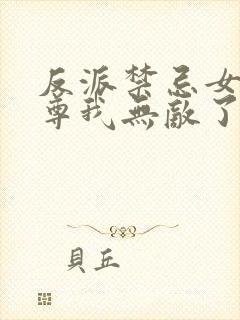 反派禁忌女
尊我無敵了
貝丘